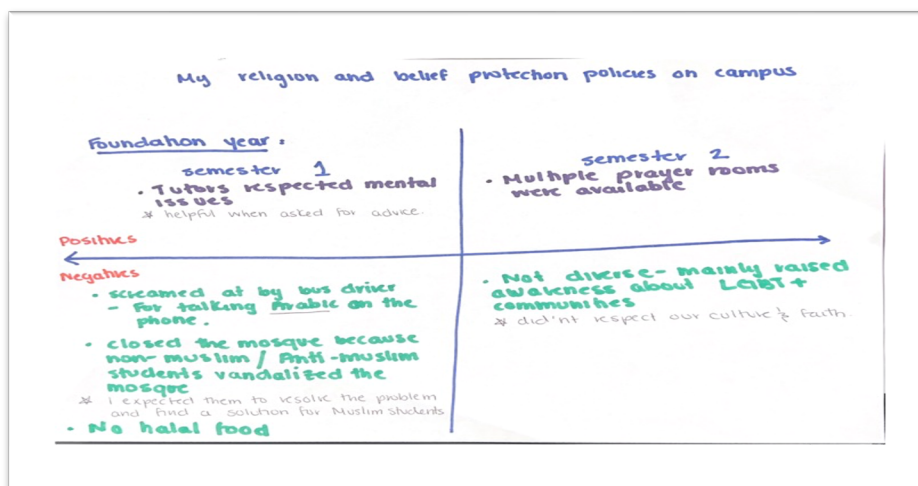 My religion and belief protection policies on campus
Foundation year.
semester 1
• Tutors respected mental
issues
* helpful when asked for advice.
semester 2
• Multiple prayer rooms
were available
Positives
Negatives
• screamed at by bus driver
- For talking Arabic on the
phone.
• closed the mosque because
non-muslim / Anti-muslim
students vandalized the
mosque
* i expected them to resolve the problem
and find a solution for Muslim students
• No halal food
• Not diverse- mainly raised
awareness about LGBT+
communities
* did'nt respect our culture & faith.